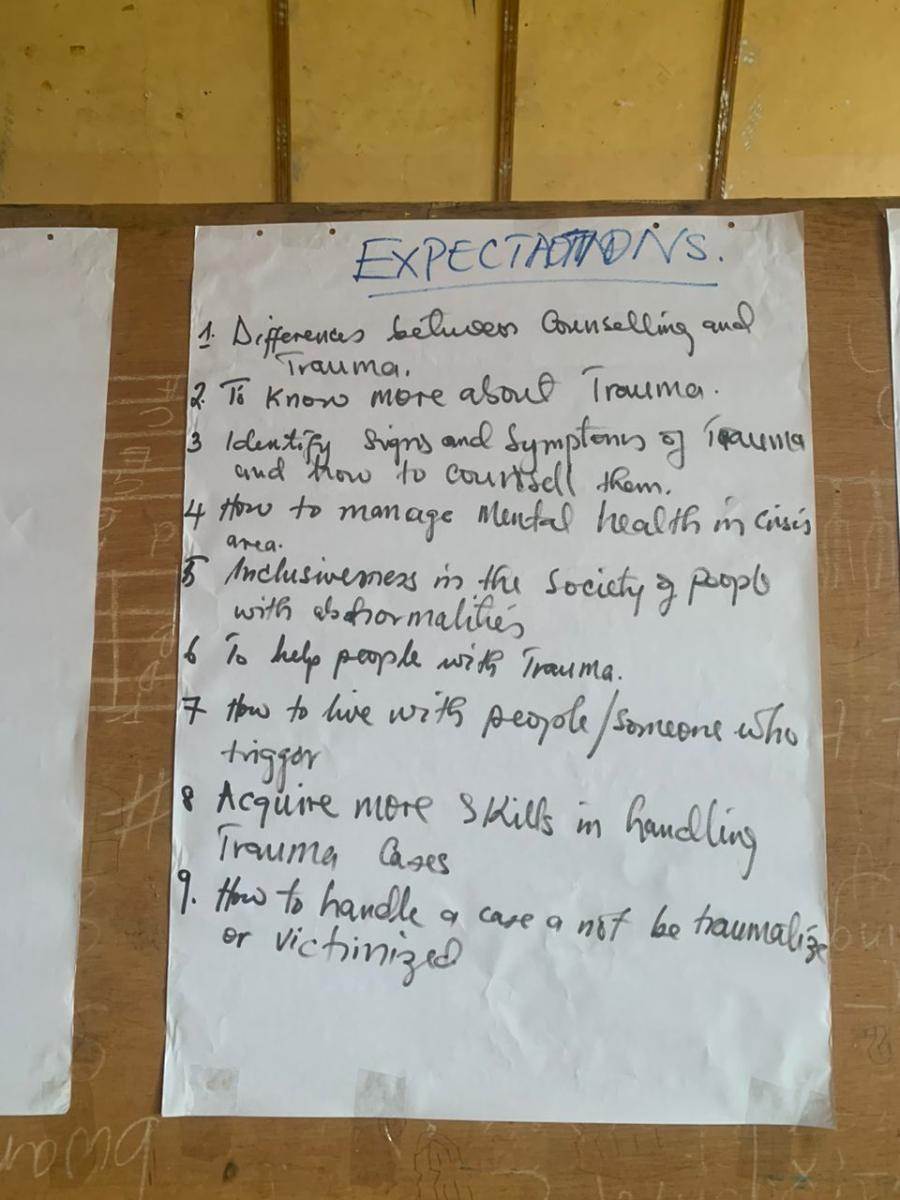 EXPECTATIONS.
1. Differences between Counselling and
Trauma.
2. To Know more about Trauma.
3 Identify Signs and Symptoms of Trauma
and How to counsell them.
4 How to manage Mental health in Crisis
area.
5 Inclusiveness in the Society of people
with abnormalities
6 To help people with Trauma.
7 How to live with people/someone who
trigger
8 Acquire more Skills in handling
Trauma Cases
9. How to handle a case a not be traumalize
or victimized